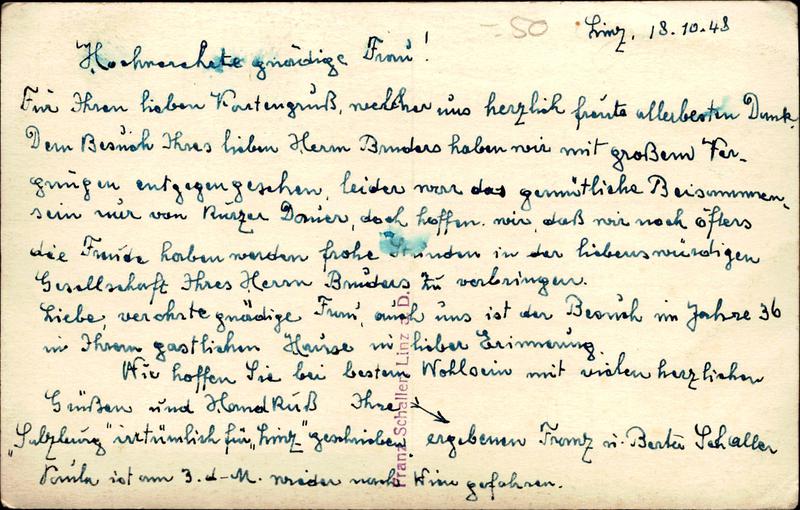 -.50
Linz, 18.10.48
Hochverehrte gnädige Frau!
Für Ihren lieben Kartengruß, welcher uns herzlich freute allerbesten Dank.
Dem Besuch Ihres lieben Herrn Bruders haben wir mit großem Ver-
gnügen entgegengesehen, leider war das gemütliche Beisammen-
sein nur von kurzer Dauer, doch hoffen wir, daß wir noch öfters
die Freude haben werden frohe Stunden in der liebenswürdigen
Gesellschaft Ihres Herrn Bruders zu verbringen.
Liebe, verehrte gnädige Frau, auch uns ist der Besuch im Jahre 36
in Ihrem gastlichen Hause in lieber Erinnerung.
Wir hoffen Sie bei bestem Wohlsein mit vielen herzlichen
Grüßen und Handkuß Ihre
"Salzburg" irrtümlich für "Linz" geschrieben ergebenen Franz u. Berta Schaller
Paula ist am 3. d. M. wieder nach Wien gefahren.
Franz Schaller, Linz a. D.